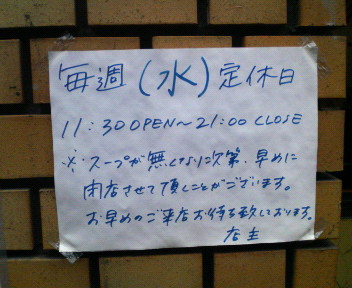 毎週(水)定休日
11:30 OPEN〜21:00 CLOSE
※スープが無くなり次第、早めに
閉店させて頂くことがございます。
お早めのご来店お待ち致しております。
店主